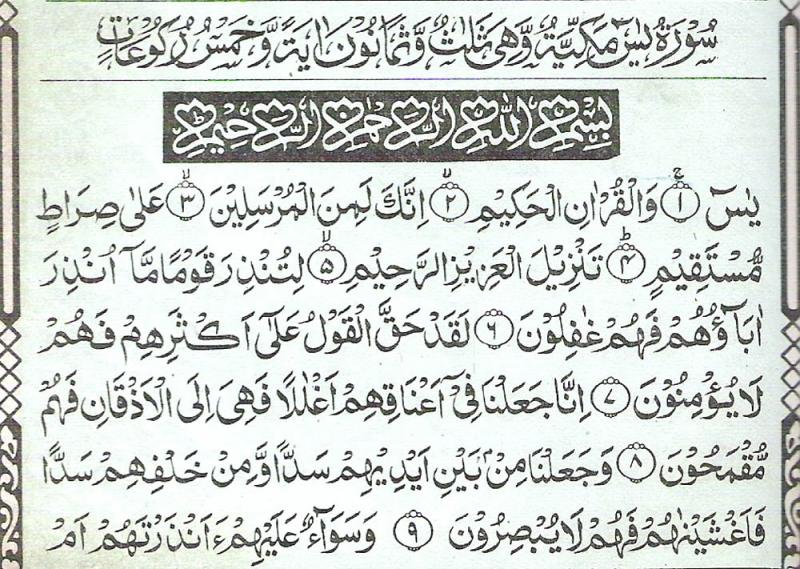 سُوْرَةُ يٰسٓ مَكِّيَّةٌ وَّهِيَ ثَلٰثٌ وَّثَمَانُوْنَ اٰيَةً وَّخَمْسُ رُكُوْعَاتٍ
بِسْمِ اللّٰهِ الرَّحْمٰنِ الرَّحِيْمِ
يٰسٓ ۝۱ۚ وَالْقُرْاٰنِ الْحَكِيْمِ ۝۲ۙ اِنَّكَ لَمِنَ الْمُرْسَلِيْنَ ۝۳ۙ عَلٰى صِرَاطٍ
مُّسْتَقِيْمٍ ۝۴ؕ تَنْزِيْلَ الْعَزِيْزِ الرَّحِيْمِ ۝۵ۙ لِتُنْذِرَ قَوْمًا مَّاۤ اُنْذِرَ
اٰبَآؤُهُمْ فَهُمْ غٰفِلُوْنَ ۝۶ لَقَدْ حَقَّ الْقَوْلُ عَلٰۤى اَكْثَرِهِمْ فَهُمْ
لَا يُؤْمِنُوْنَ ۝۷ اِنَّا جَعَلْنَا فِيْۤ اَعْنَاقِهِمْ اَغْلٰلًا فَهِيَ اِلَى الْاَذْقَانِ فَهُمْ
مُّقْمَحُوْنَ ۝۸ وَجَعَلْنَا مِنْۢ بَيْنِ اَيْدِيْهِمْ سَدًّا وَّمِنْ خَلْفِهِمْ سَدًّا
فَاَغْشَيْنٰهُمْ فَهُمْ لَا يُبْصِرُوْنَ ۝۹ وَسَوَآءٌ عَلَيْهِمْ ءَاَنْذَرْتَهُمْ اَمْ